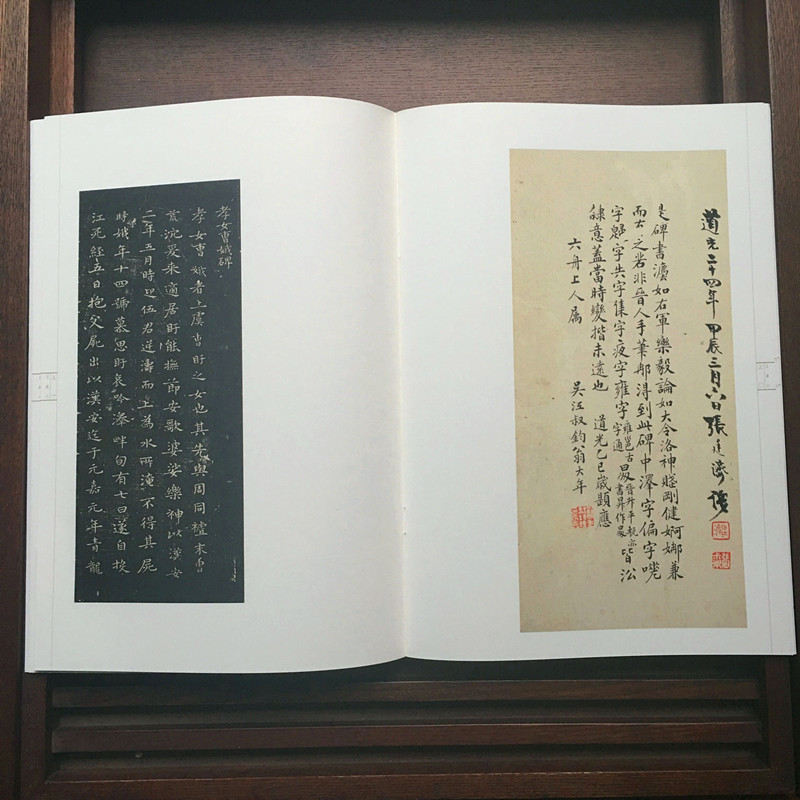 道光二十四年甲辰三月六日張廷濟獲
是碑書灋如右軍樂毅論如大令洛神賤剛健婀娜兼
而有之若非晉人手筆那得到此碑中澤字偏字嘵
字歸字共字集字夜字雍字
雍邕古字通
皆沿
隸意蓋當時變楷未遠也 道光乙巳歲題應
六舟上人属
吳江叔鈞翁大年
孝女曹娥碑
孝女曹娥者上虞曹盱之女也其先與周同祖末胄
荒沉爰来適居盱能撫節安歌婆娑樂神以漢安
二年五月時迎伍君逆濤而上為水所淹不得其屍
時娥年十四號慕思盱哀吟澤畔旬有七日遂自投
江死經五日抱父屍出以漢安迄于元嘉元年青龍